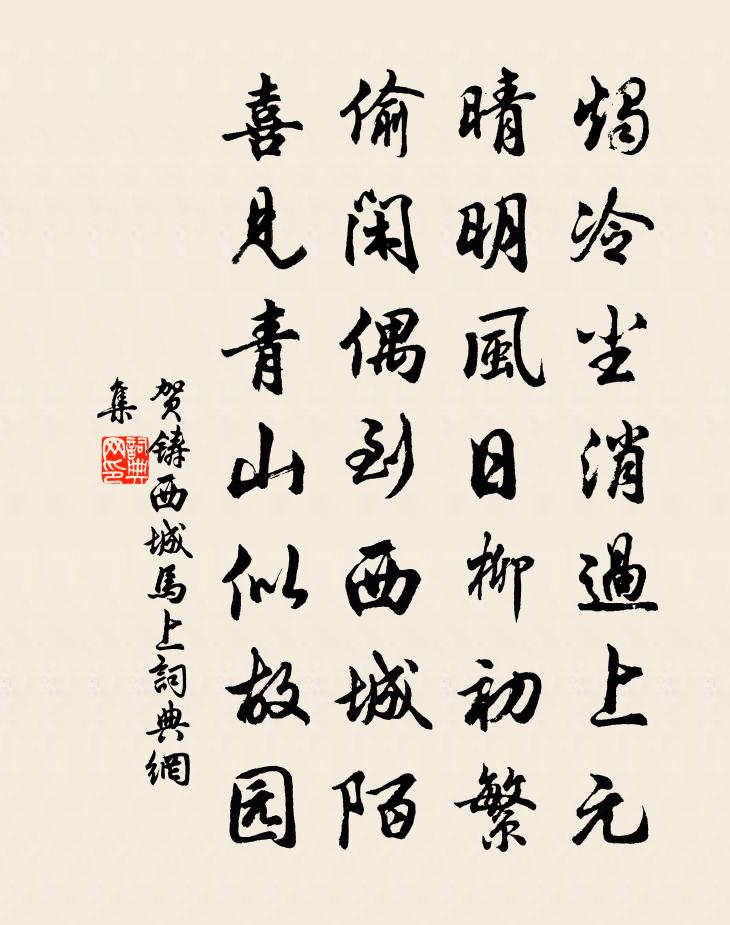 燭冷尘消過上元
晴明風日柳初繁
偷閑偶到西城陌
喜見青山似故园
贺鑄西城馬上詞典網
集
詞典
网印